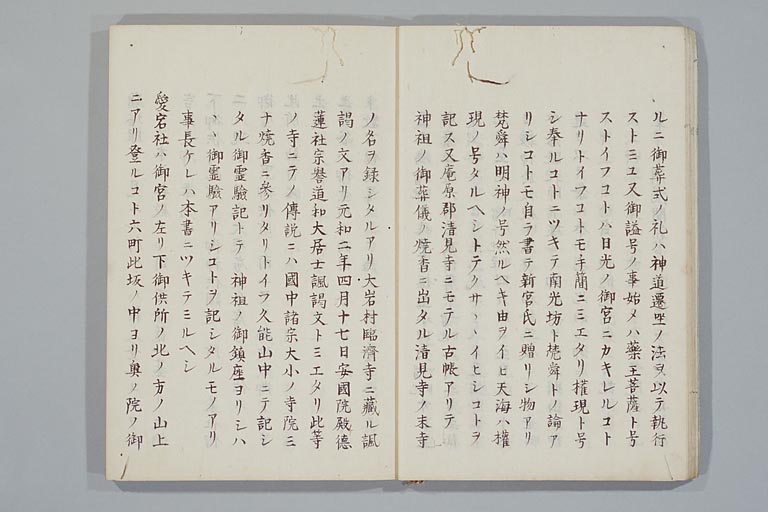 ルニ御葬式ノ礼ハ神道遷坐ノ法ヲ以テ執行
ストミユ又御謚号ノ事始メハ藥王菩薩ト号
ストイフコトハ日光ノ御宮ニカキレルコト
ナリトイフコトモ手簡ニミエタリ權現ト号
シ奉ルコトニツキテ南光坊ト梵舜トノ論ア
リシコトモ自ラ書テ新宮氏ニ贈リシ物アリ
梵舜ハ明神ノ号然ルヘキ由ヲイヒ天海ハ權
現ノ号タルヘシトテクサ〻〻イヒシコトヲ
記ス又庵原郡清見寺ニモテル古帳アリテ
神祖ノ御葬儀ノ焼香ニ出タル清見寺ノ末寺
ノ名ヲ録シタルアリ大岩村臨濟寺ニ藏ル諷
謁ノ文アリ元和二年四月十七日安國院殿德
蓮社宗譽道和大居士諷謁文トミエタリ此等
ノ寺ニテノ傳説ニハ國中諸宗大小ノ寺院ミ
ナ焼香ニ参リタリトイフ久能山中ニテ記シ
タル御霊驗記トテ 神祖ノ御鎮座ヨリシハ
〻〻御霊驗アリシコトヲ記シタルモノアリ
事長ケレハ本書ニツキテミルヘシ
愛宕社ハ御宮ノ左リ下御供所ノ北ノ方ノ山上
ニアリ登ルコト六町此坂ノ中ヨリ奥ノ院ノ御